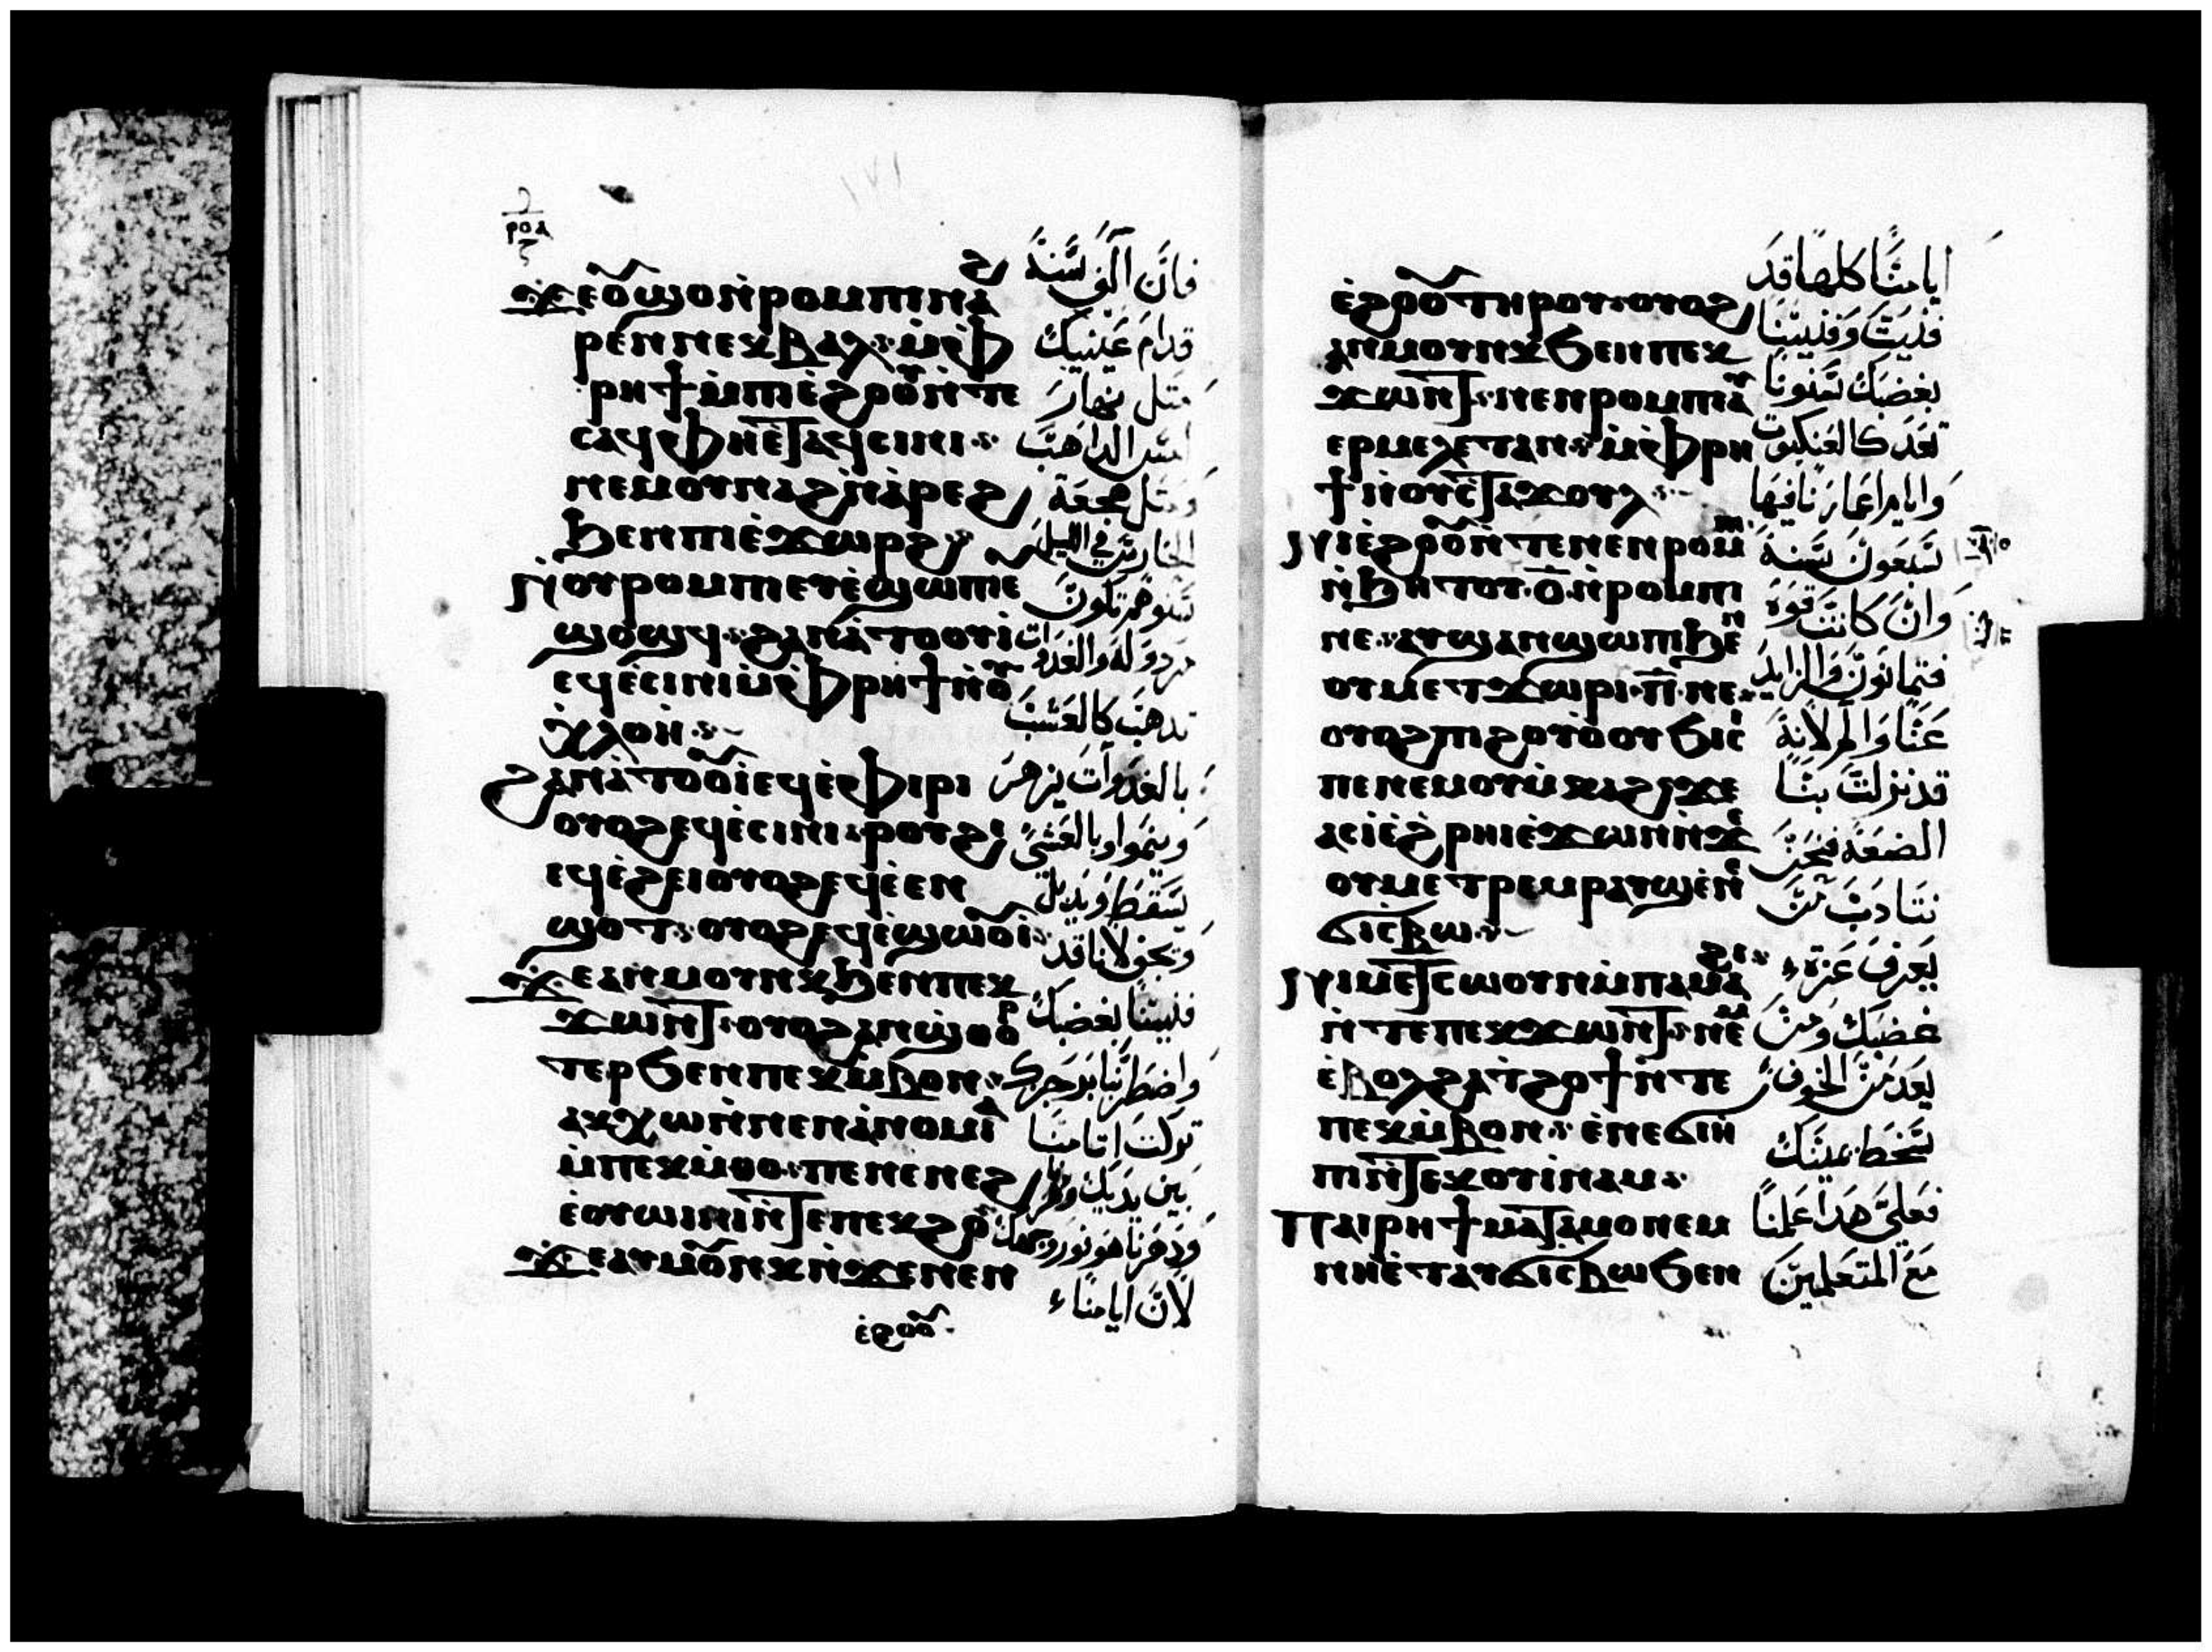 ⲣⲟⲁ
ϫⲉⲟⲩ̄ϣⲟⲛ̀ⲣⲟⲙⲡⲓⲛⲁϩ
ⲣⲉⲛⲛⲉⲕⲃⲁⲗ: ⲙ̀ⲫ̀
ⲣⲏϯⲙ̀ⲡⲓⲉ̀ϩⲟⲟⲩⲛ̀ⲧⲉ
ⲥⲁϥⲫⲏⲉ̀ⲧⲁϥⲥⲓⲛⲓ:
ⲛⲉⲙⲟⲩⲛⲁϩⲛ̀ⲁ̀ⲣⲉϩ
ϧⲉⲛⲡⲓⲉ̀ϫⲱⲣϩ
ⲛⲓⲟⲩⲣⲟⲙⲡⲓⲉⲩⲉ̀ϣⲱⲡⲉ
ϣⲟϣϥ: ϩⲁⲛⲁ̀ⲧⲟⲟⲩⲓ̀
ⲉϥⲉ̀ⲥⲓⲛⲓⲙ̀ⲫ̀ⲣⲏϯⲛ̀ⲟⲩ
ⲭ̀ⲗⲟⲏ:
ϩⲁⲛⲁ̀ⲧⲟⲟⲩⲓ̀ⲉϥⲉ̀ⲫⲓⲣⲓ
ⲟⲩⲟϩⲉϥⲉ̀ⲥⲓⲛⲓ: ⲣⲟⲩϩⲓ
ⲉϥⲉ̀ϩⲉⲓⲟⲩⲟϩⲉϥⲉ̀ⲉⲛ
ϣⲟⲧ: ⲟⲩⲟϩⲉϥⲉ̀ϣⲱⲟⲩⲓ̀:
ϫⲉⲁⲛⲙⲟⲩⲛⲕϧⲉⲛⲡⲉⲕ
ϫⲱⲛⲧ: ⲟⲩⲟϩⲁⲛϣ̀ⲑⲟⲣ
ⲧⲉⲣϧⲉⲛⲡⲉⲕⲙ̀ⲃⲟⲛ:
ⲁⲕⲭⲱⲛ̀ⲛⲉⲛⲁ̀ⲛⲟⲙⲓⲁ
ⲙ̀ⲡⲉⲕⲙ̀ⲑⲟ: ⲡⲉⲛⲉⲛⲉϩ
ⲉ̀ⲟⲩⲱⲓⲛⲓⲛ̀ⲧⲉⲡⲉⲕϩⲟ
ϫⲉⲁⲩⲙⲟⲩⲛⲕⲛ̀ϫⲉⲛⲉⲛ
ⲉ̀ϩⲟⲟⲩ
فان الف سنة
قدام عينيك
مثل نهار
امس الداهب
ومثل هجعة
الحارس في الليل
سنوهم تكون
مردوله والغدوات
تدهب كالعشب
بالغدوات يزهر
وينموا وبالعشي
يسقط ويدبل
ويجف لانا قد
فنيينا بغضبك
واضطربنا برجزك
توكلت اتامنا
بين يديك
ودهرنا هو نور وجهك
لان ايامنا
ⲉ̀ϩⲟⲟⲩⲧⲏⲣⲟⲩ: ⲟⲩⲟϩ
ⲁⲛⲙⲟⲩⲛⲕϧⲉⲛⲡⲉⲕ
ϫⲱⲛⲧ: ⲛⲉⲛⲣⲟⲙⲡⲓⲁⲩ
ⲉⲣⲙⲉⲗⲉⲧⲁⲛ: ⲙ̀ⲫ̀ⲣⲏ
ϯⲛ̀ⲟⲩⲥ̀ⲧⲁϫⲟⲩⲗ:
ⲛⲓⲉ̀ϩⲟⲟⲩⲛ̀ⲧⲉⲛⲉⲛⲣⲟⲙⲡⲓ
ⲛ̀ϧⲏⲧⲟⲩ: ⲟ̄: ⲛ̀ⲣⲟⲙⲡⲓ
ⲛⲉ: ⲁⲩϣⲁⲛϣⲱⲡⲓϧⲉⲛ
ⲟⲩⲙⲉⲧϫⲱⲣⲓ: ⲡ̄: ⲛⲉ:
ⲟⲩⲟϩⲡⲓϩⲟⲩⲟ̀ⲟⲩϧⲓⲥⲓ
ⲡⲉⲛⲉⲙⲟⲩⲙ̀ⲕⲁϩ: ϫⲉ
ⲁⲥⲓ̀ⲉ̀ϩ̀ⲣⲏⲓⲉ̀ϫⲱⲛⲛ̀ϫⲉ
ⲟⲩⲙⲉⲧⲣⲉⲙⲣⲁⲩϣⲉⲛ̀
ϭⲓⲥⲃⲱ:
ⲛⲓⲙⲉ̀ⲧⲥⲱⲟⲩⲛⲙ̀ⲡⲁⲙⲁϩⲓ
ⲛ̀ⲧⲉⲡⲉⲕϫⲱⲛⲧ: ⲛⲉⲙ
ⲉ̀ⲃⲟⲗϩⲁⲧϩⲟϯⲛ̀ⲧⲉ
ⲡⲉⲕⲙ̀ⲃⲟⲛ: ⲉ̀ⲡⲉϭⲓⲏ
ⲡⲓⲛ̀ⲧⲉⲕⲟⲩⲓ̀ⲛⲁⲙ:
ⲡⲁⲓⲣⲏϯⲙⲁⲧⲁⲙⲟⲛⲉⲙ
ⲛⲏⲉ̀ⲧⲁⲩϭⲓⲥⲃⲱϧⲉⲛ
ايامنا كلها قد
فنيت وفنيينا
بغضبك سنونا
تعد كالعنكبوت
وايام اعمارنا فيها
سبعون سنة
وان كانت قوة
فتمانون والزايد
عنا والم لانه
قد نزلت بنا
الضعة فنحن
نتادب من
يعرف عزة
غضبك ومن
يعد من الخوف
سخط يمينك
فعلي هدا علمنا
مع المتعلمين